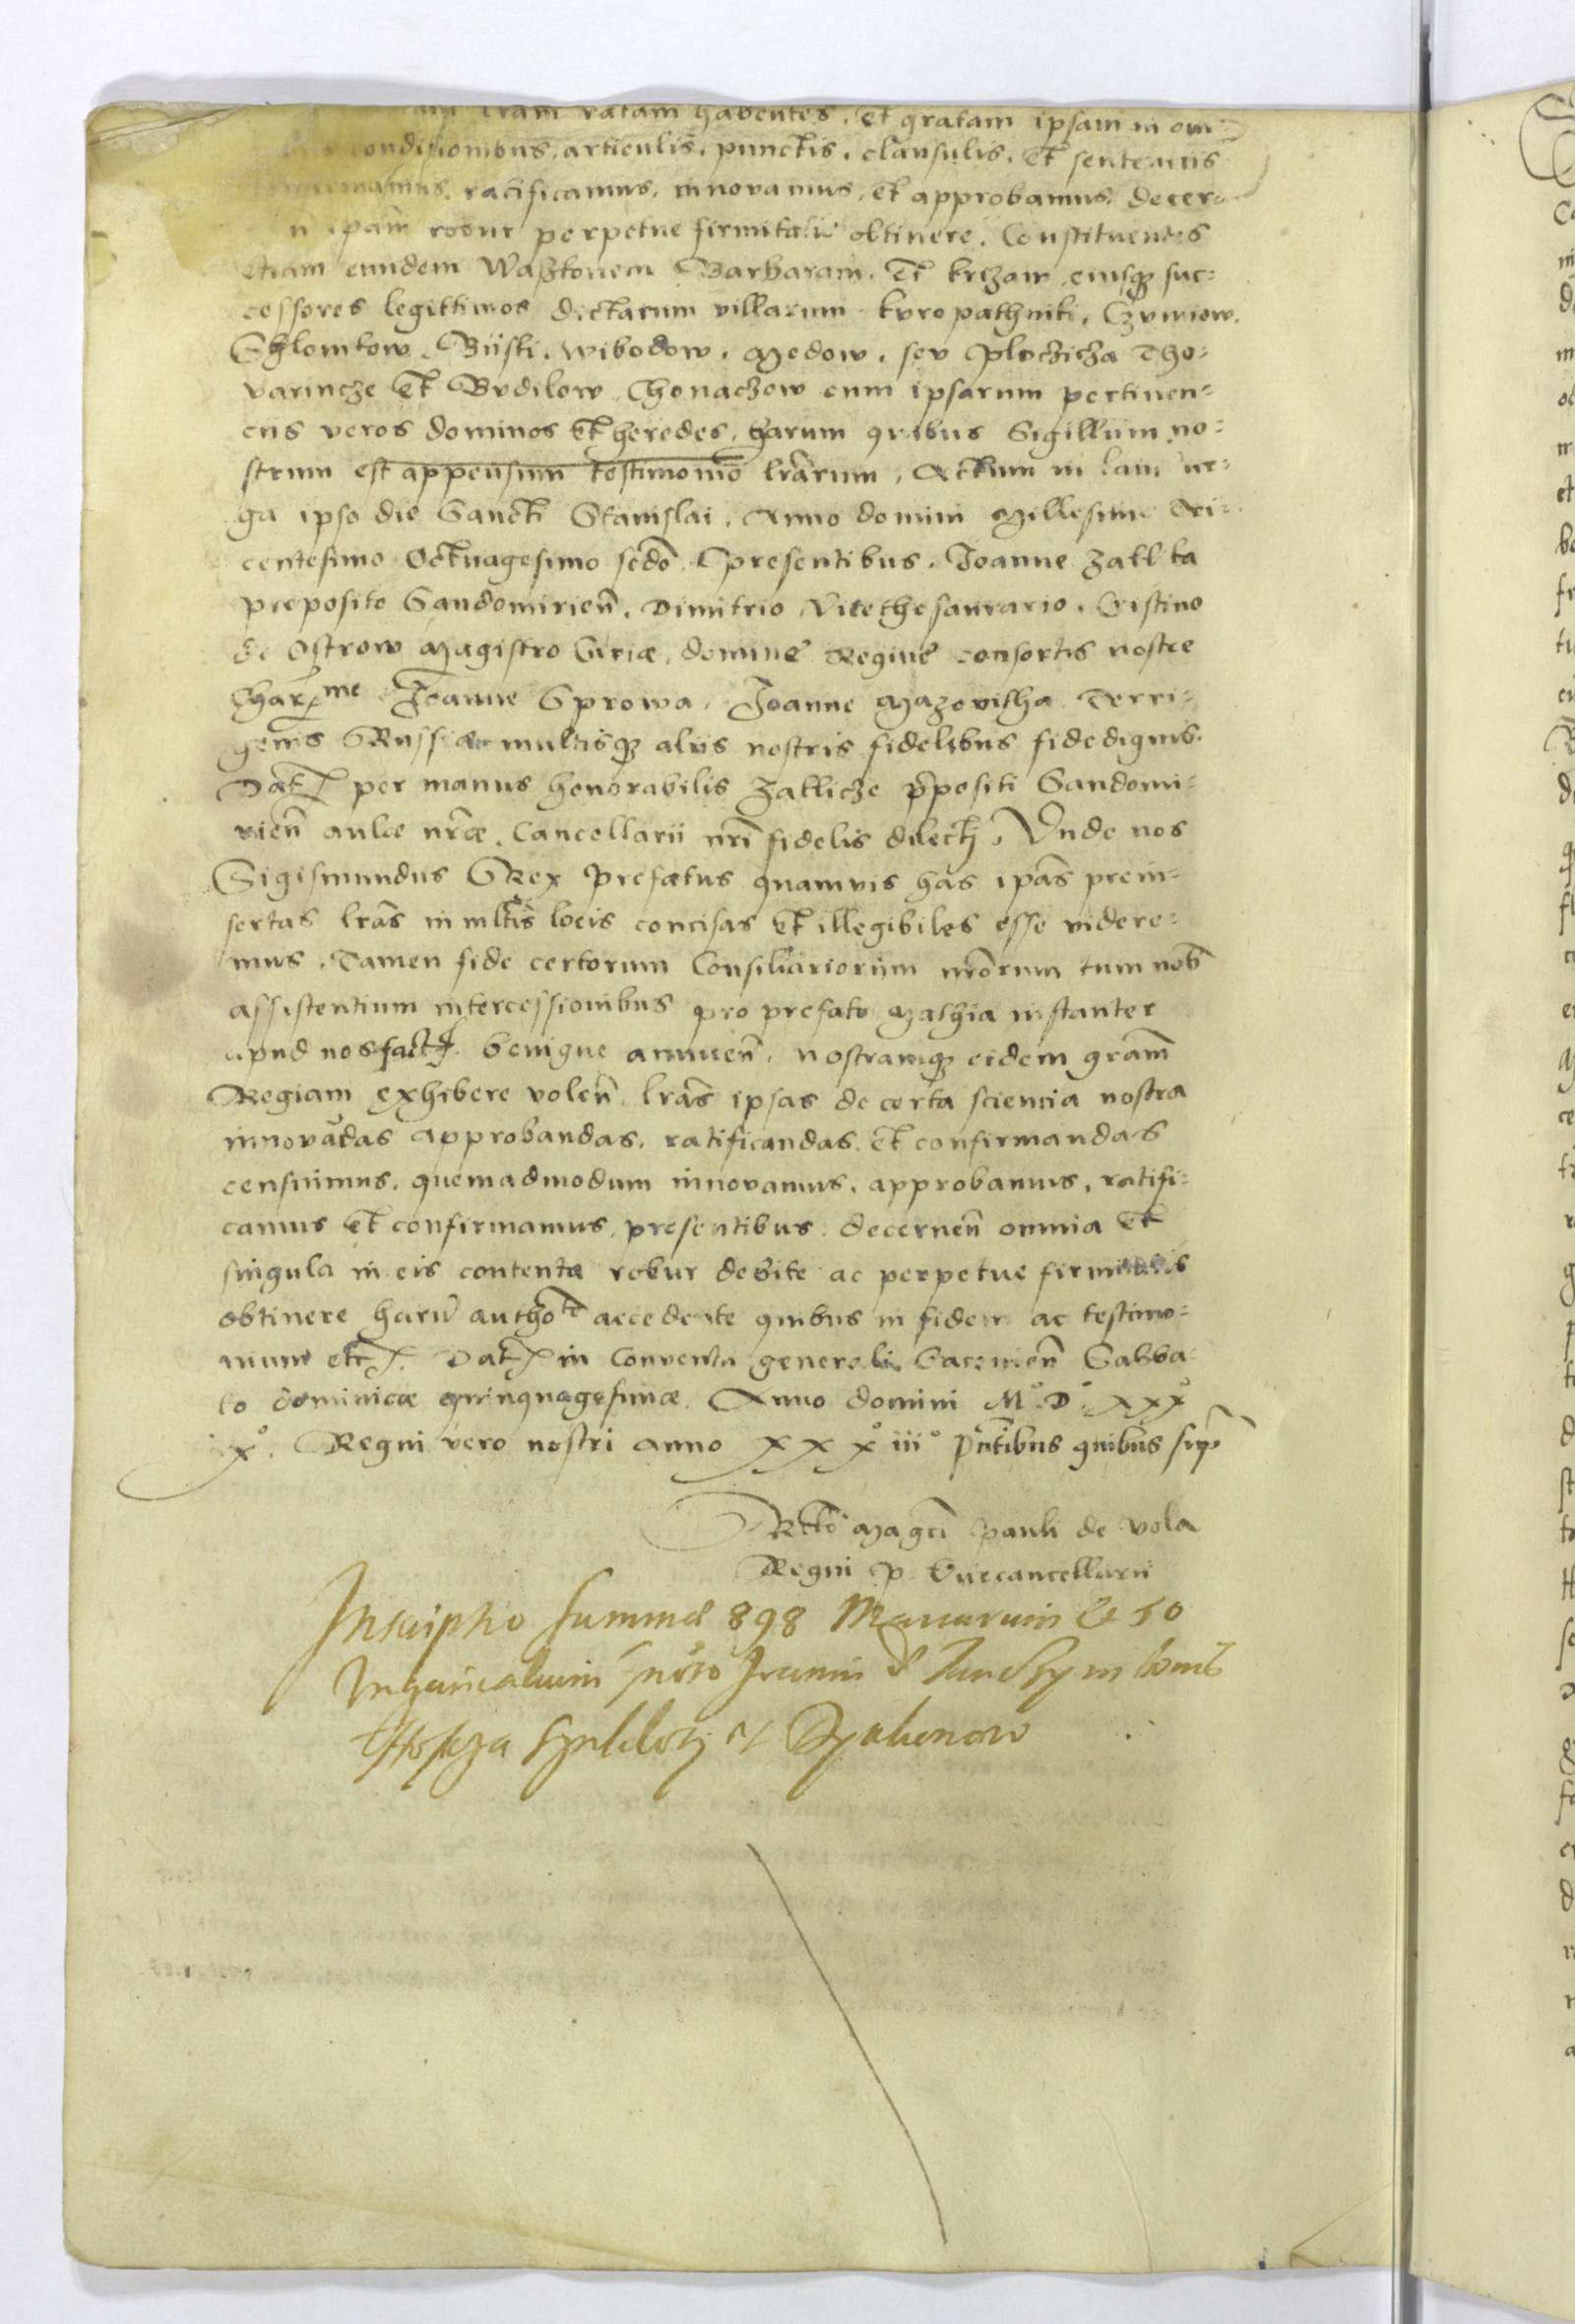 lram ratam habentes, et gratam ipsam in om=
conditionibus, articulis, punctis, clausulis, et sententiis
ratificamus, innovamus, et approbamus, decer=
ipam robur perpetue firmitatis obtinere. Constituentes
etiam eundem Waßkonem Barbaram. Et krzow eiusqz suc=
cessores legittimos dictarum villarum kvropathniki, Czvniow.
Schlomkow. Büski. Wibodow. Medow. sev Plochicza Tho=
varincze et Bvdilow Thonaczow cum ipsarum pertinen=
ciis veros dominos et heredes, harum quibus Sigillum no=
strum est appensum testimonio lrarum. Actum in
ga ipso die Sancti Stanislai. Anno domini Millesimo Tri=
centesimo Octuagesimo scdo. presentibus. Joanne Zaklika
preposito Sandomirien. Dimitrio Vicethesaurario. Cristino
de Ostrow Magistro Curiae, domine Regine consortis nostre
Charme Joanne Sprowa. Joanne Mazovitha Terri=
genis Russiae multisqz aliis nostris fidelibus fidedignis.
Dat per manus honorabilis Zaklicze prepositi Sandomi=
rien aulae nrae. Cancellarii nri fidelis dilecti. Vnde nos
Sigismundus Rex prefatus quamvis has ipas prein=
sertas lras in mltis locis concisas et illegibiles esse videre=
mus. Tamen fide certorum Consiliariorum nrorum tum nob
assistentium intercessionibus pro prefato Mathia instanter
apud nos fact. benigne annuen. nostramqz eidem gram
Regiam exhibere volen. lras ipsas de certa sciencia nostra
innovadas approbandas. ratificandas. et confirmandas
censuimus. quemadmodum innovamus. approbamus. ratifi=
camus et confirmamus. presentibus. decernen omnia et
singula in eis contenta robur debite ac perpetue firmitatis
obtinere haru authote accedente quibus in fidem ac testimo=
nium etc. Dat in Conventu generali Cracovien Sabba=
to dominicae quinquagesimae. Anno domini M° D° xxx°
ix°. Regni vero nostri anno xxxiii° pntibus quibus sup
Rcto Magci Pauli de Vola
Regni P. Vicecancellarii
Inscriptio summae 898 Marcarum & 50
Vngaricalium nro Joanni in bonis
et